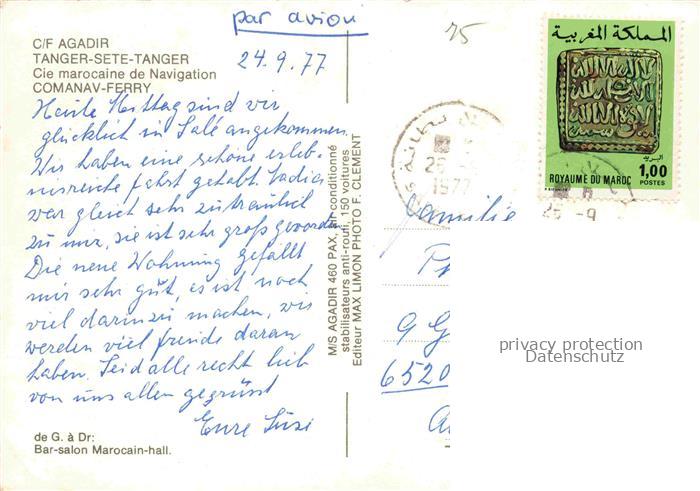 par avion
75
C/F AGADIR
TANGER-SETE-TANGER
Cie marocaine de Navigation
COMANAV-FERRY
24.9.77
Heute Mittag sind wir
glücklich in Salé angekommen.
Wir haben eine schöne erleb-
nisreiche Fahrt gehabt. Nadia
war gleich sehr zutraulich
zu mir, sie ist sehr groß geworden
Die neue Wohnung gefällt
mir sehr gut, es ist noch
viel darin zu machen, wir
werden viel freude daran
haben. Seid alle recht lieb
von uns allen gegrüsst
Eure Susi
de G. à Dr:
Bar-salon Marocain-hall.
M/S AGADIR 460 PAX, air conditionné
stabilisateurs anti-roulí, 150 voitures
Editeur MAX LIMON PHOTO F. CLEMENT
المملكة المغربية
البريد
ROYAUME DU MAROC
1,00
POSTES
1977
25 -9
Familie
9 G
6520
privacy protection
Datenschutz